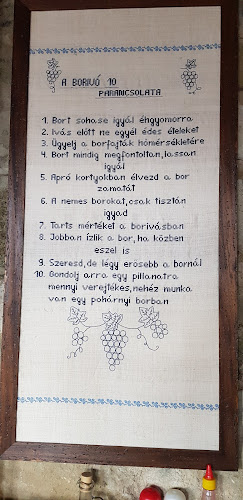 A BORIVÓ 10
PARANCSOLATA
1. Bort sohase igyál éhgyomorra
2. Ivás előtt ne egyél édes ételeket
3. Ügyelj a borfajták hőmérsékletére
4. Bort mindig megfontoltan, lassan
igyál
5. Apró kortyokban élvezd a bor
zamatát
6. A nemes borokat, csak tisztán
igyad
7. Tarts mértéket a borivásban
8. Jobban ízlik a bor, ha közben
eszel is
9. Szeresd, de légy erősebb a bornál
10. Gondolj arra egy pillanatra
mennyi verejtékes, nehéz munka
van egy pohárnyi borban